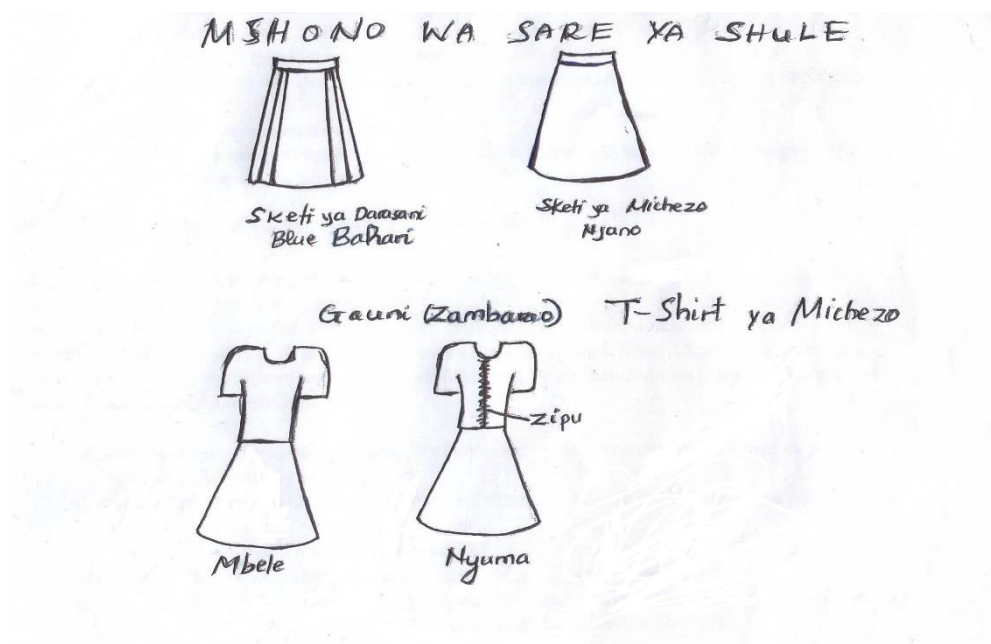 MSHONO WA SARE YA SHULE
Sketi ya Darasani
Blue Bahari
Sketi ya Michezo
Njano
Gauni (Zambarao)
T-Shirt ya Michezo
Zipu
Mbele
Nyuma